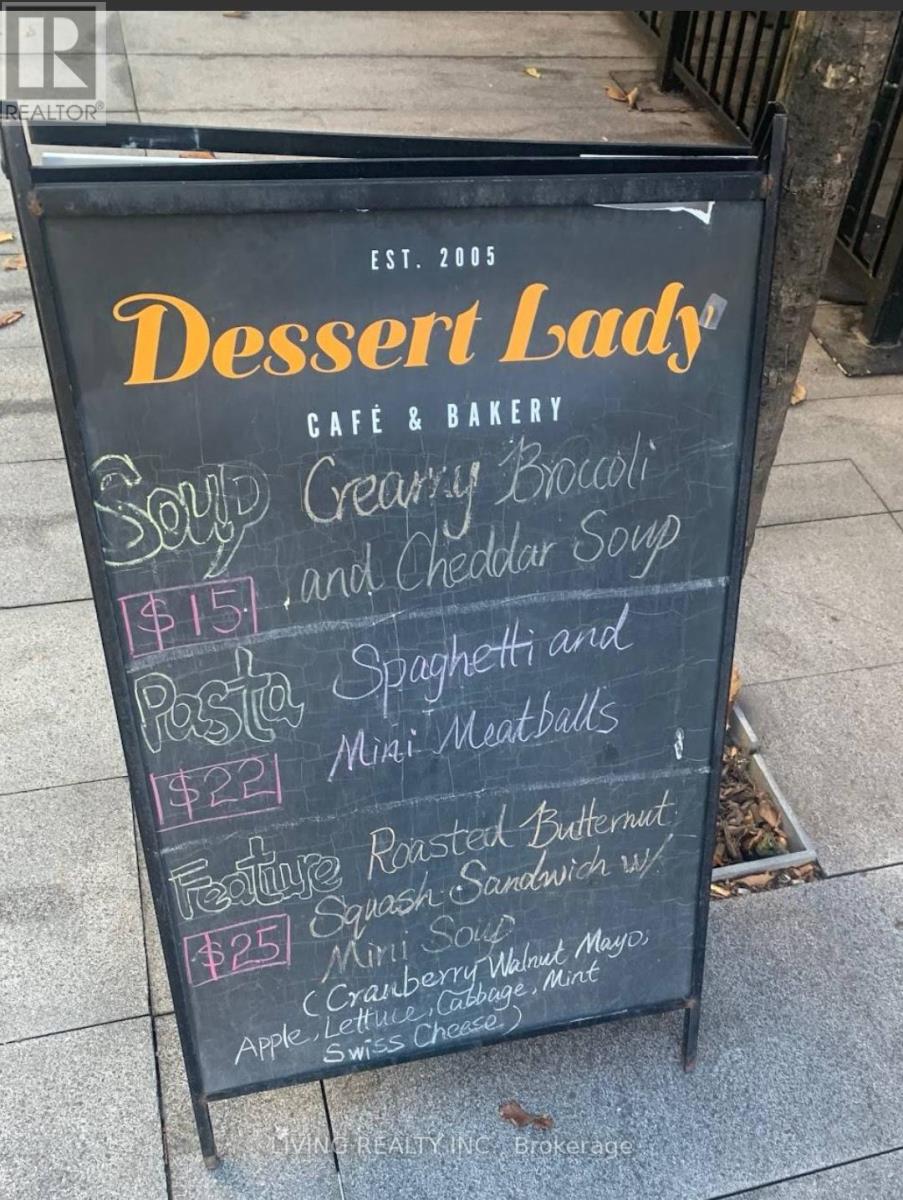 REALTOR®
EST. 2005
Dessert Lady
CAFÉ & BAKERY
Soup Creamy Broccoli
and Cheddar Soup
$15
Pasta Spaghetti and
Mini Meatballs
$22
Feature Roasted Butternut
Squash Sandwich w/
$25
Mini Soup
(Cranberry Walnut Mayo,
Apple, Lettuce, Cabbage, Mint
Swiss Cheese)
LIVING REALTY INC., Brokerage